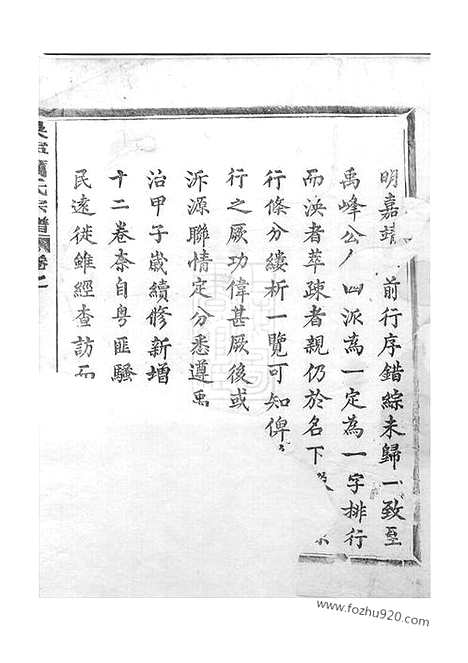 明嘉靖 前行序錯綜未歸一致至
禹峰公 派為一定為一字排行
而泱者萃疎者親仍於名下
行條分縷析一覽可知俾
行之厥功偉甚厥後或
泝源聯情定分悉遵禹
治甲子歲續修新增
十二卷柰自粤匪騷
民遠徙雖經查訪而
氏宗譜 卷一
www.fozhu920.com